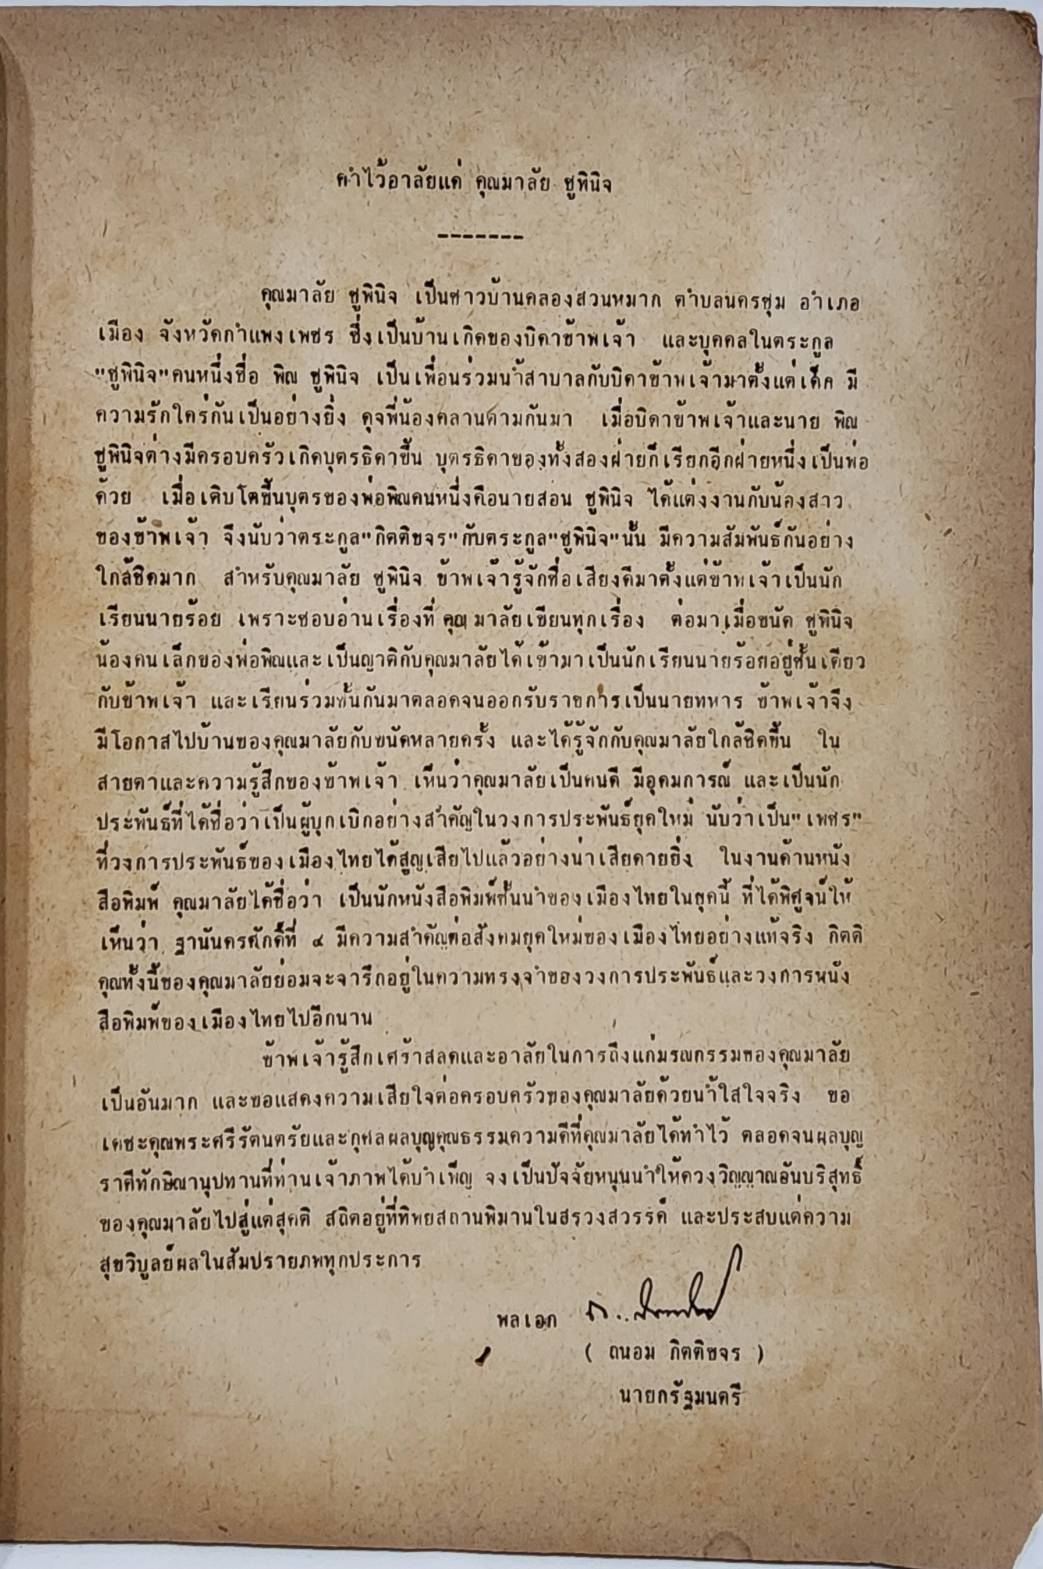 คำไว้อาลัยแด่ คุณมาลัย ชูพินิจ
-------
คุณมาลัย ชูพินิจ เป็นชาวบ้านคลองสวนหมาก ตำบลนครชุม อำเภอ
เมือง จังหวัดกำแพงเพชร ซึ่งเป็นบ้านเกิดของบิดาข้าพเจ้า และบุคคลในตระกูล
"ชูพินิจ" คนหนึ่งชื่อ พิณ ชูพินิจ เป็นเพื่อนร่วมน้ำสาบาลกับบิดาข้าพเจ้ามาตั้งแต่เด็ก มี
ความรักใคร่กันเป็นอย่างยิ่ง ดุจพี่น้องคลานตามกันมา เมื่อบิดาข้าพเจ้าและนาย พิณ
ชูพินิจต่างมีครอบครัวเกิดบุตรธิดาขึ้น บุตรธิดาของทั้งสองฝ่ายก็เรียกอีกฝ่ายหนึ่งเป็นพ่อ
ด้วย เมื่อเติบโตขึ้นบุตรของพ่อพิณคนหนึ่งคือนายสอน ชูพินิจ ได้แต่งงานกับน้องสาว
ของข้าพเจ้า จึงนับว่าตระกูล "กิตติขจร" กับตระกูล "ชูพินิจ" นั้น มีความสัมพันธ์กันอย่าง
ใกล้ชิดมาก สำหรับคุณมาลัย ชูพินิจ ข้าพเจ้ารู้จักชื่อเสียงดีมาตั้งแต่ข้าพเจ้าเป็นนัก
เรียนนายร้อย เพราะชอบอ่านเรื่องที่ คุณ มาลัยเขียนทุกเรื่อง ต่อมาเมื่อขนัด ชูพินิจ
น้องคนเล็กของพ่อพิณและเป็นญาติกับคุณมาลัยได้เข้ามาเป็นนักเรียนนายร้อยอยู่ชั้นเดียว
กับข้าพเจ้า และเรียนร่วมชั้นกันมาตลอดจนออกรับราชการเป็นนายทหาร ข้าพเจ้าจึง
มีโอกาสไปบ้านของคุณมาลัยกับขนัดหลายครั้ง และได้รู้จักกับคุณมาลัยใกล้ชิดขึ้น ใน
สายตาและความรู้สึกของข้าพเจ้า เห็นว่าคุณมาลัยเป็นคนดี มีอุดมการณ์ และเป็นนัก
ประพันธ์ที่ได้ชื่อว่าเป็นผู้บุกเบิกอย่างสำคัญในวงการประพันธ์ยุคใหม่ นับว่าเป็น "เพชร"
ที่วงการประพันธ์ของเมืองไทยได้สูญเสียไปแล้วอย่างน่าเสียดายยิ่ง ในงานด้านหนัง
สือพิมพ์ คุณมาลัยได้ชื่อว่า เป็นนักหนังสือพิมพ์ชั้นนำของเมืองไทยในยุคนี้ ที่ได้พิศูจน์ให้
เห็นว่า ฐานันดรศักดิ์ที่ ๔ มีความสำคัญต่อสังคมยุคใหม่ของเมืองไทยอย่างแท้จริง กิตติ
คุณทั้งนี้ของคุณมาลัยย่อมจะจารึกอยู่ในความทรงจำของวงการประพันธ์และวงการหนัง
สือพิมพ์ของเมืองไทยไปอีกนาน
ข้าพเจ้ารู้สึกเศร้าสลดและอาลัยในการถึงแก่มรณกรรมของคุณมาลัย
เป็นอันมาก และขอแสดงความเสียใจต่อครอบครัวของคุณมาลัยด้วยน้ำใสใจจริง ขอ
เดชะคุณพระศรีรัตนตรัยและกุศลผลบุญคุณธรรมความดีที่คุณมาลัยได้ทำไว้ ตลอดจนผลบุญ
ราศีทักษิณานุปทานที่ท่านเจ้าภาพได้บำเพ็ญ จงเป็นปัจจัยหนุนนำให้ดวงวิญญาณอันบริสุทธิ์
ของคุณมาลัยไปสู่แต่สุคติ สถิตอยู่ที่ทิพยสถานพิมานในสรวงสวรรค์ และประสบแต่ความ
สุขวิบูลย์ผลในสัมปรายภพทุกประการ
พลเอก
( ถนอม กิตติขจร )
นายกรัฐมนตรี